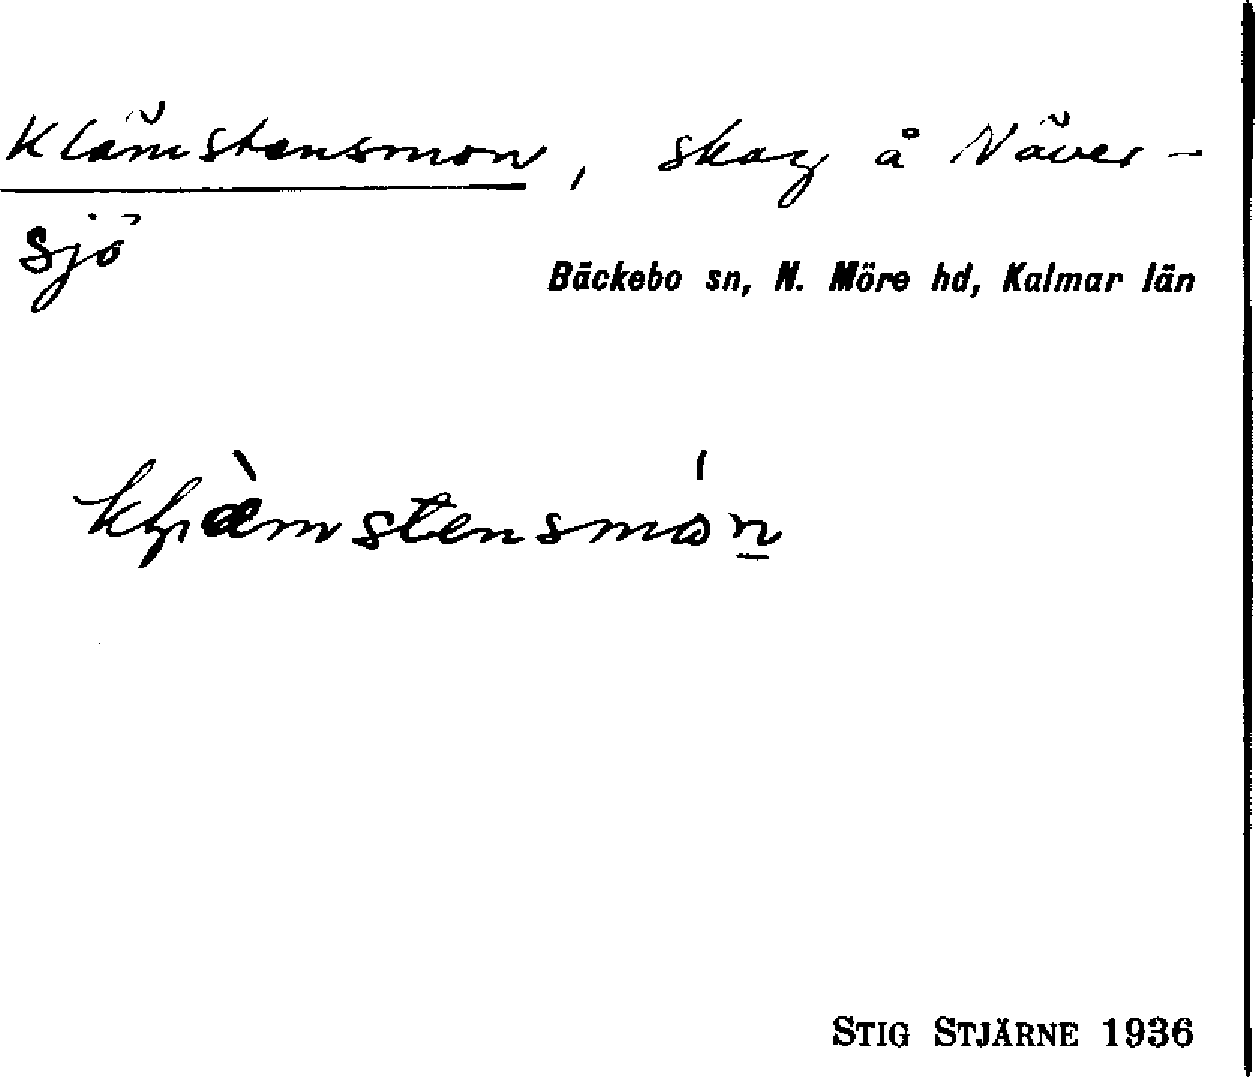 Klämstensmon, skog å Näver-
sjö
Bäckebo sn, N. Möre hd, Kalmar län
kḷæ̀mstensmón̲
STIG STJÄRNE 1936